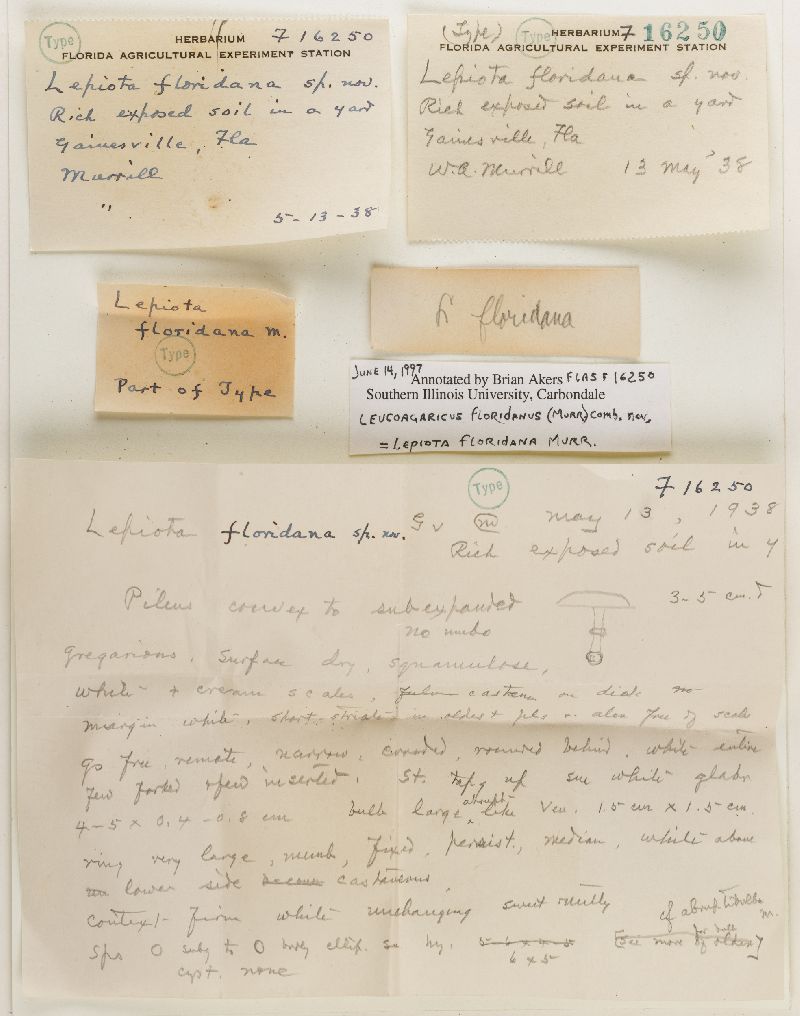 Type
HERBARIUM F 16250
FLORIDA AGRICULTURAL EXPERIMENT STATION
Lepiota floridana sp. nov.
Rich exposed soil in a yard
Gainesville, Fla
Murrill
"
5-13-38
(Type) Type HERBARIUM F 16250
FLORIDA AGRICULTURAL EXPERIMENT STATION
Lepiota floridana sp. nov.
Rich exposed soil in a yard
Gainesville, Fla
W.A. Murrill 13 May 38
Lepiota
floridana M.
Type
Part of Type
L floridana
JUNE 14, 1997
Annotated by Brian Akers FLAS F 16250
Southern Illinois University, Carbondale
LEUCOAGARICUS FLORIDANUS (MURR.) comb. nov.
= LEPIOTA FLORIDANA MURR.
Type
F 16250
Lepiota floridana sp. nov. Gv m May 13, 1938
Rich exposed soil in y
Pileus convex to subexpanded 3-5 cm.
no umbo
gregarious. Surface dry, squamulose,
white + cream scales, castan on disk
margin white, short-striate in oldest also free of scale
free, remote, narrow, crowded, rounded behind, white entire
few forked + few inserted. St. tap, up white glabr
4-5 x 0.4-0.8 cm bulb large, abrupt like Vol. 1.5 cm x 1.5 cm.
ring very large, memb, fixed, persist., median, white above
lower side castaneous,
context firm white unchanging sweet nutty
cf abruptibulba M.
Sps O subg to O broly ellip. sm hy. 5-6 x 4-5 [See more for bulb of older]
6 x 5
cyst. none